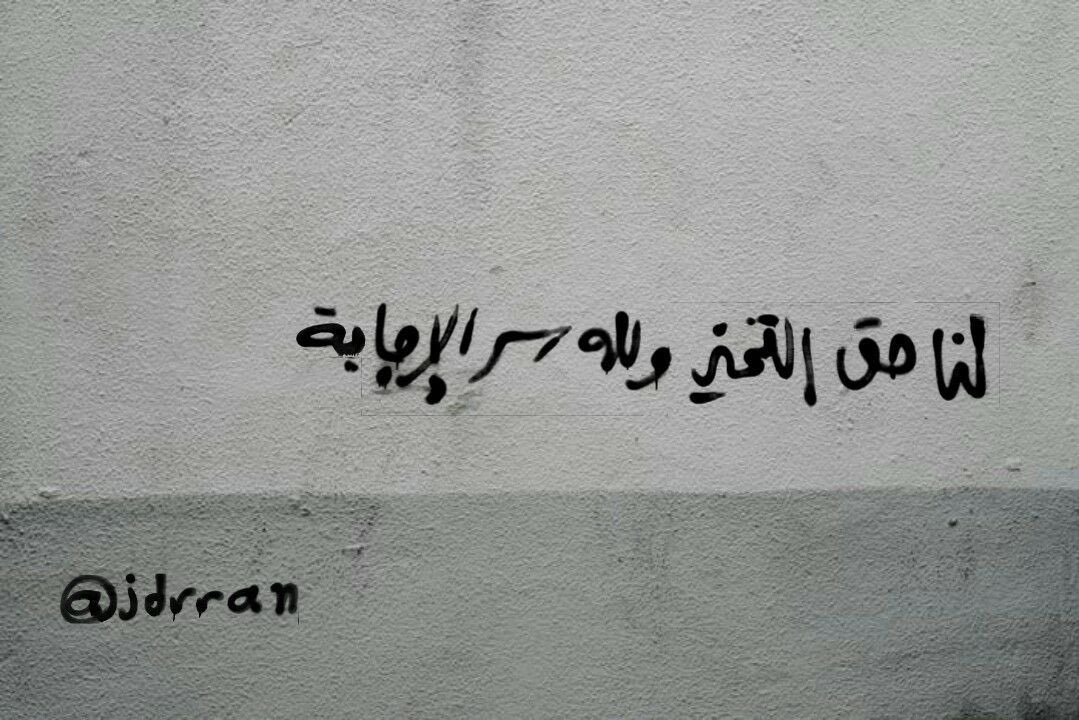 لنا حق التخيّر ولله سر الإجابة
@jdrran